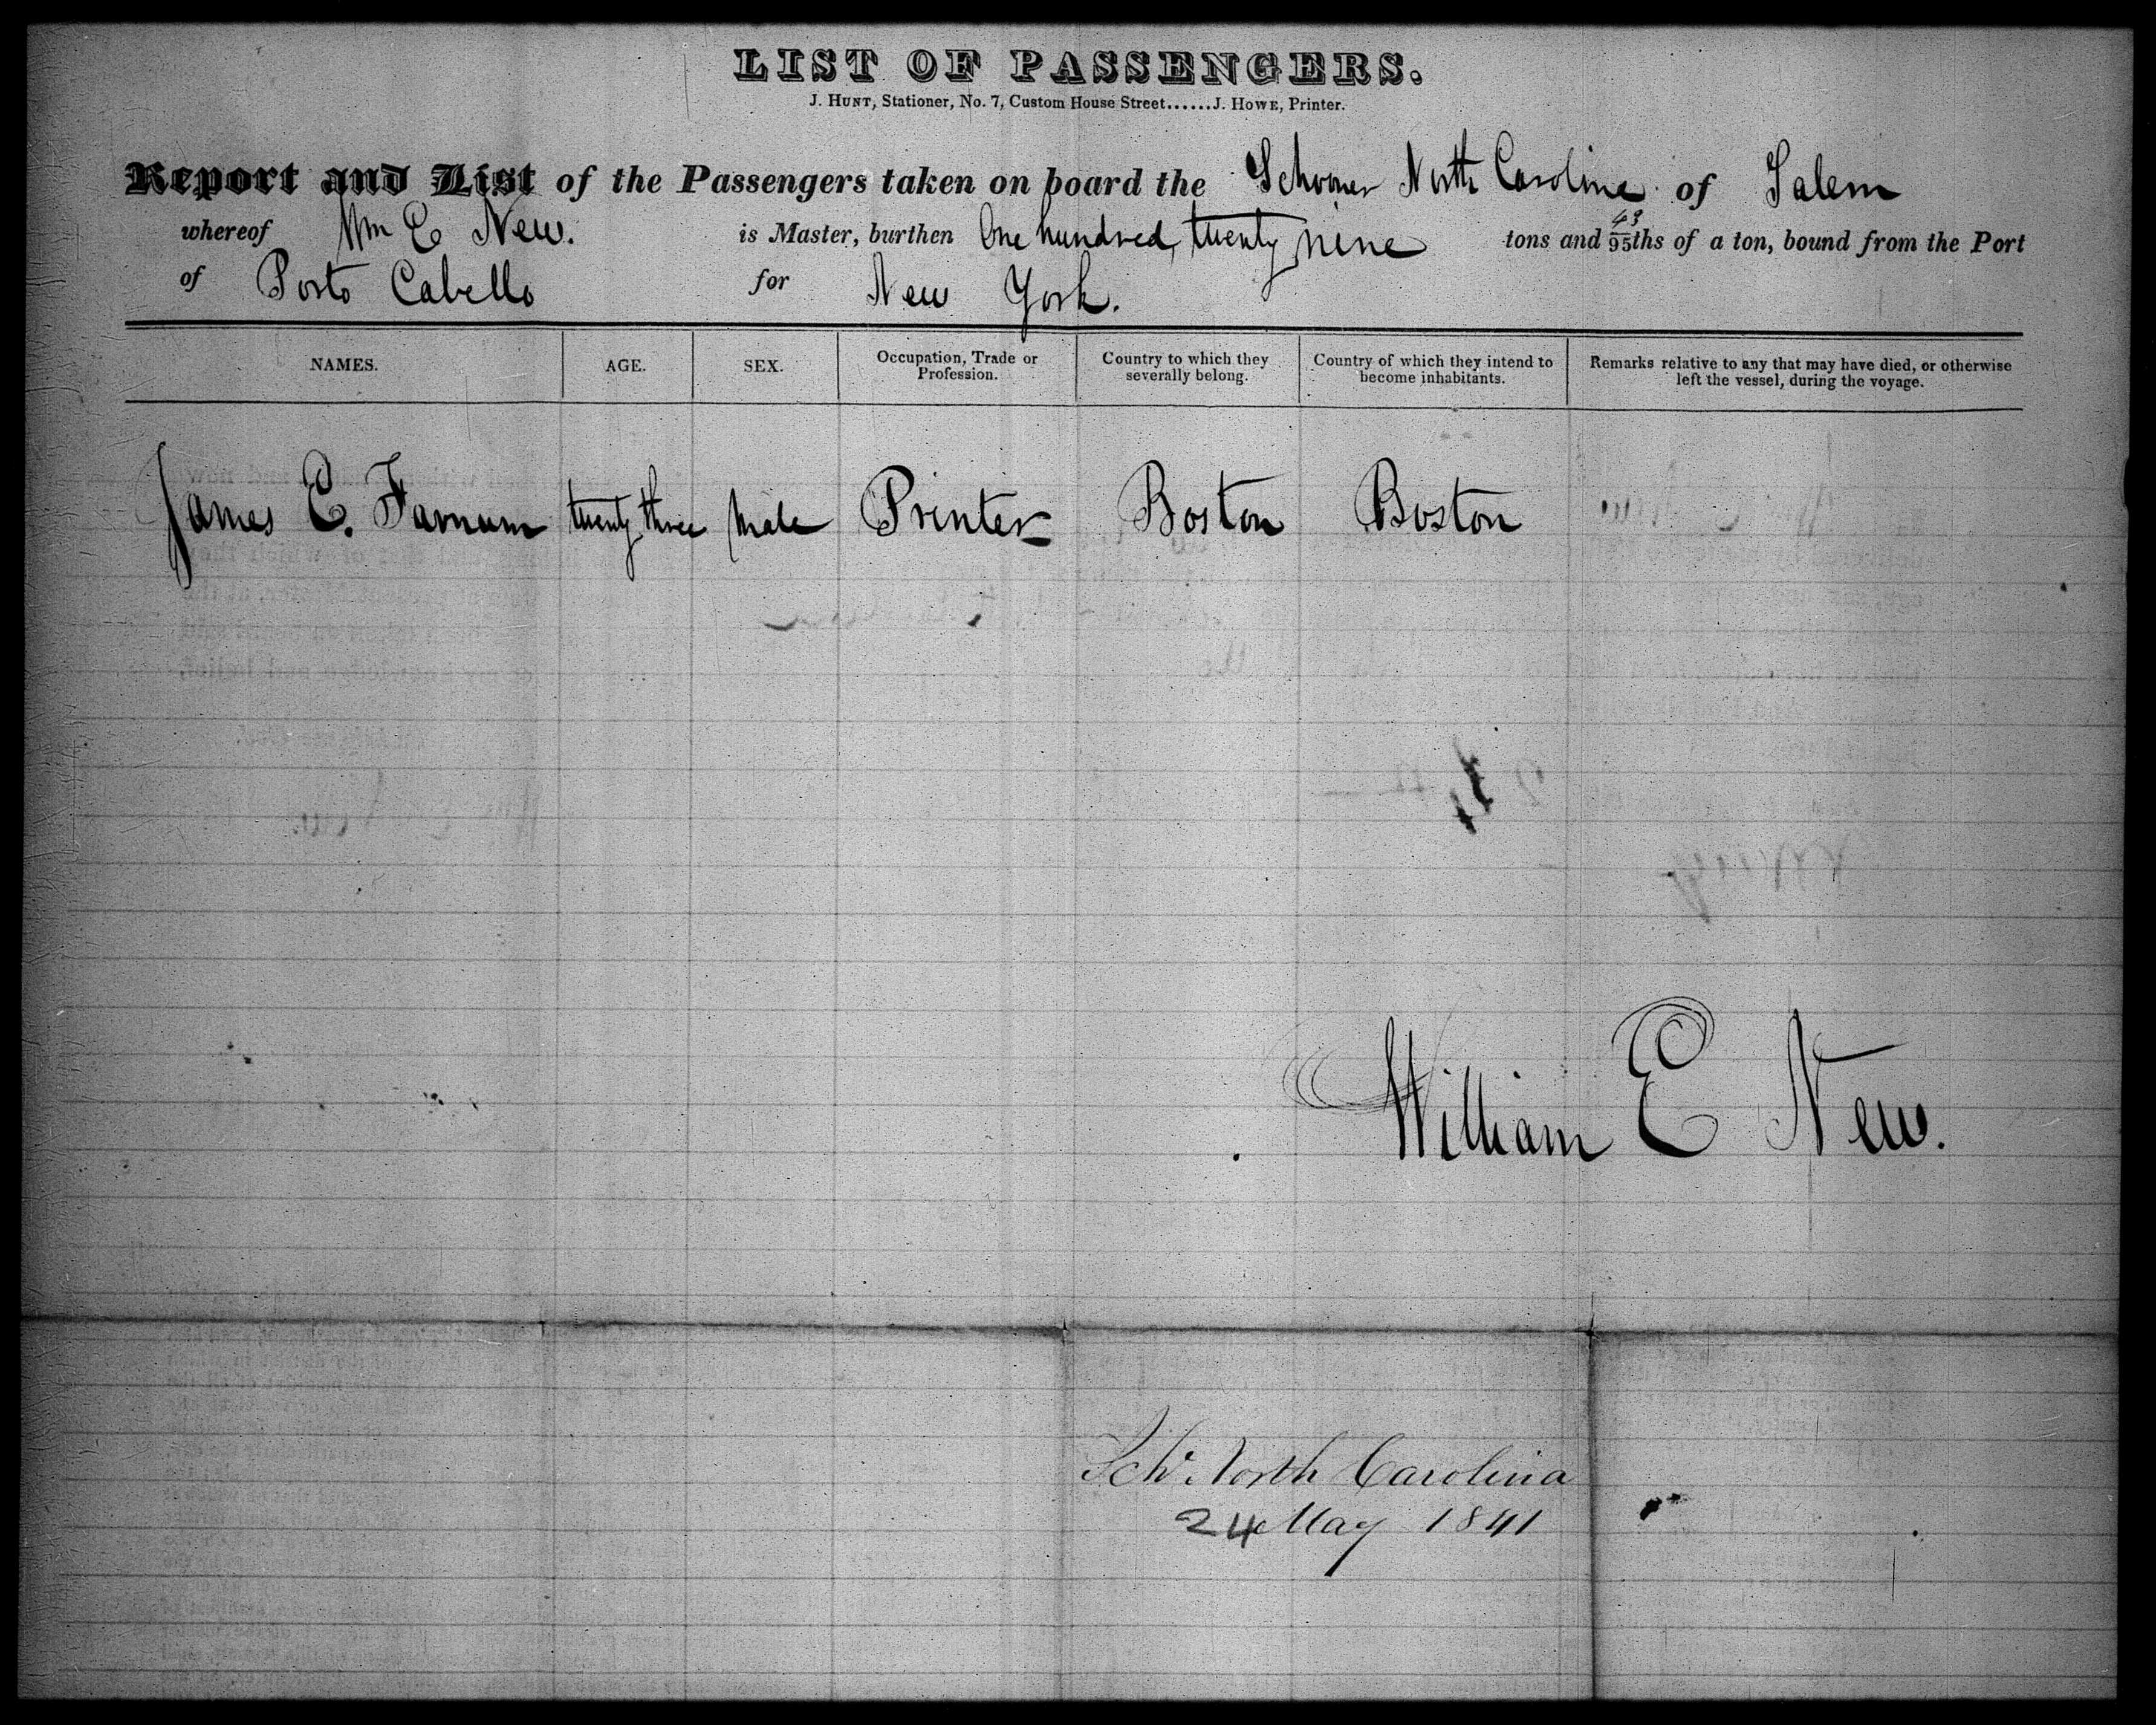 LIST OF PASSENGERS.
J. HUNT, Stationer, No. 7, Custom House Street......J. HOWE, Printer.
Report and List of the Passengers taken on board the Schooner North Carolina of Salem
whereof Wm E New. is Master, burthen One hundred, twenty nine tons and 43/95ths of a ton, bound from the Port
of Porto Cabello for New York.
NAMES. AGE. SEX. Occupation, Trade or Profession. Country to which they severally belong. Country of which they intend to become inhabitants. Remarks relative to any that may have died, or otherwise left the vessel, during the voyage.
James E. Farnum twenty three Male Printer Boston Boston
William E New.
Schr North Carolina
24 May 1841